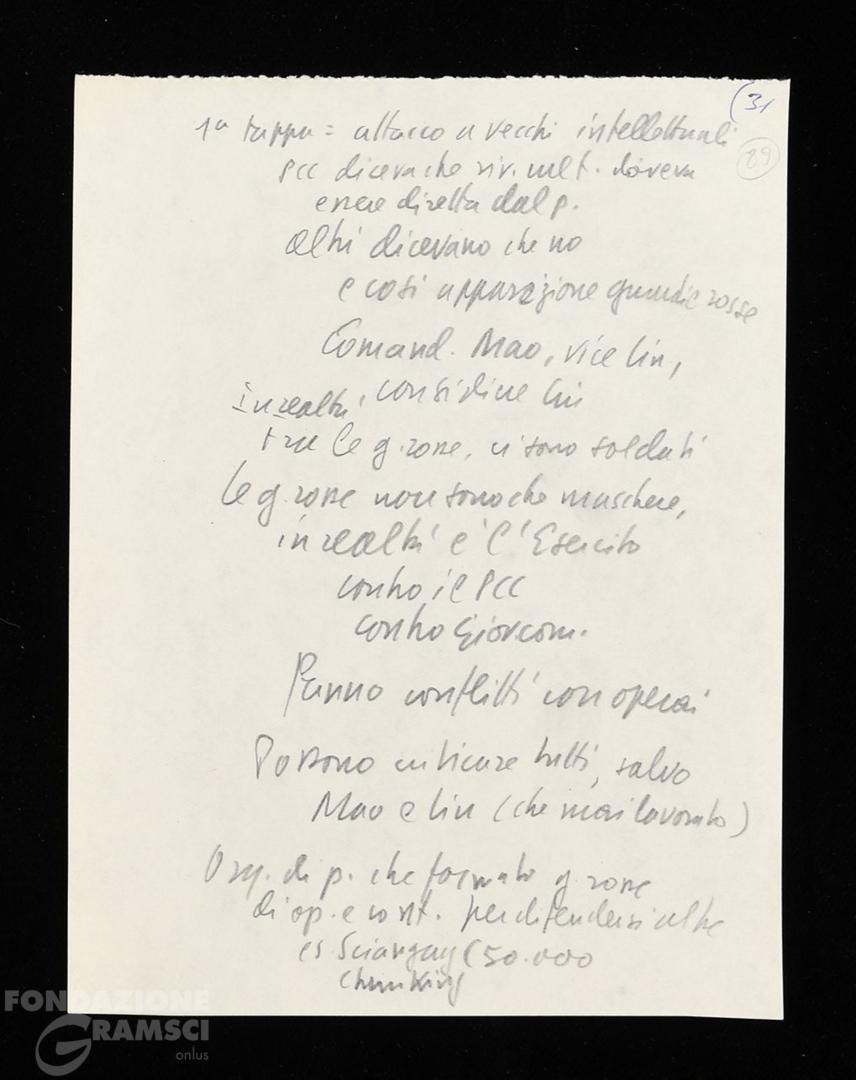 (31
89
1ª tappa = attacco a vecchi intellettuali
PCC diceva che riv. cult. doveva
essere diretta dal p.
Altri dicevano che no
e così apparizione guardie rosse
Comand. Mao, vice Lin,
in realtà, Lin
tra le g. rosse, ci sono soldati
Le g. rosse non sono che maschere,
in realtà è l'Esercito
contro il PCC
contro Giov. com.
Hanno conflitti con operai
Possono criticare tutti, salvo
Mao e Lin (che mai lavorato)
Org. di p. che formato g. rosse
di op. e cont. per difendersi altre
es Sciangay (50.000
Chunking
FONDAZIONE
GRAMSCI
onlus